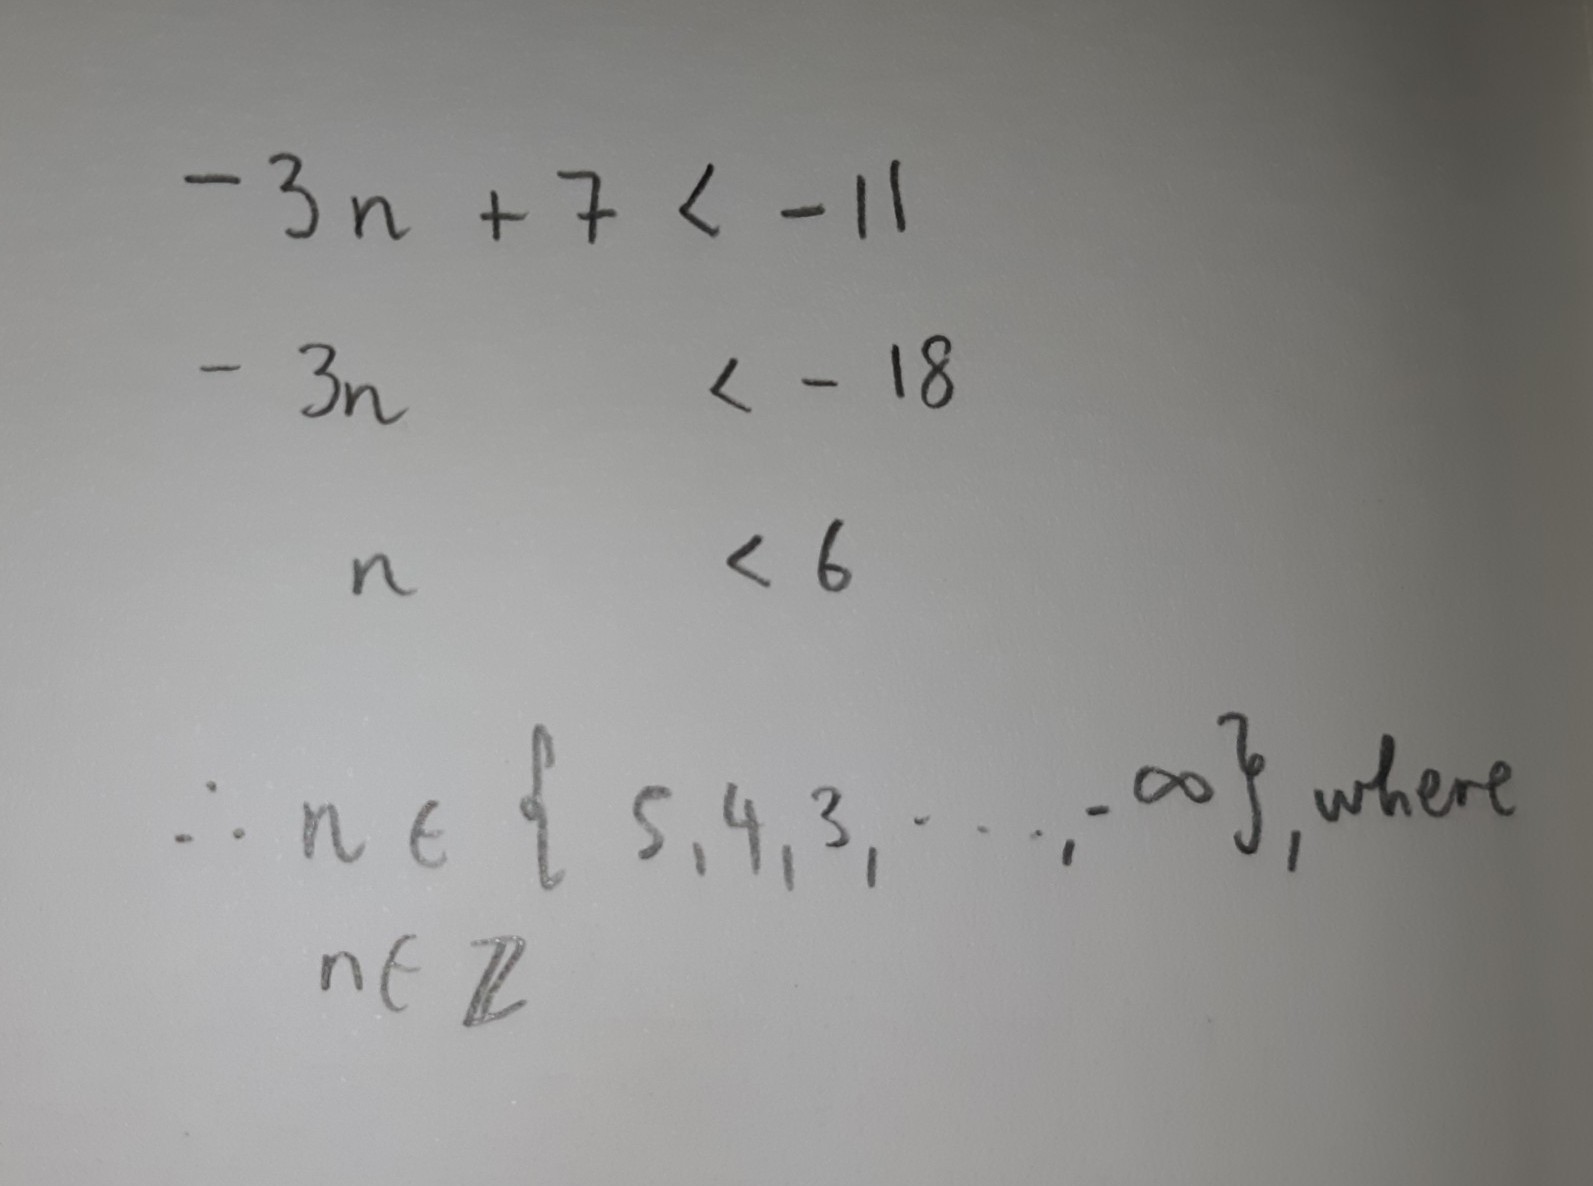 -3n + 7 < -11
- 3n < - 18
n < 6
∴ n ∈ { 5, 4, 3, ....., -∞}, where
n ∈ ℤ